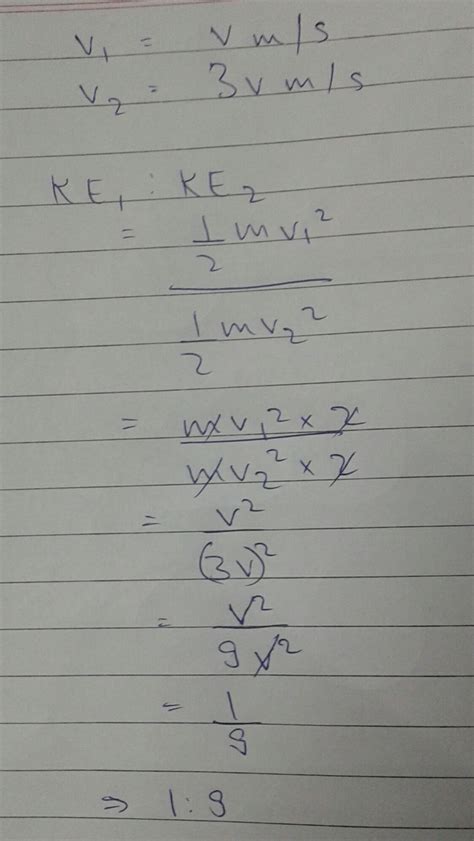 V₁ = V m/s
V₂ = 3V m/s
KE₁ : KE₂
= ½ m V₁²
½ m V₂²
= m x V₁² x 2
m x V₂² x 2
= V²
(3V)²
= V²
9V²
= 1
9
⇒ 1 : 9